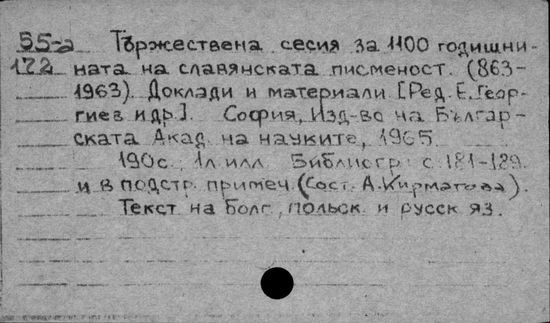 55-2 Тържествена сесия за 1100 годишни-
172 ната на славянската писменост. (863-
1963). Доклади и материали [Ред. Е. Геор-
гиев и др.]. София, Изд-во на Българ-
ската Акад. на науките, 1965.
190с., 1л.илл. Библиогр: с. 181-189.
и в подстр. примеч. (Сост. А. Кирмагова).
Текст на болг., польск. и русск яз.